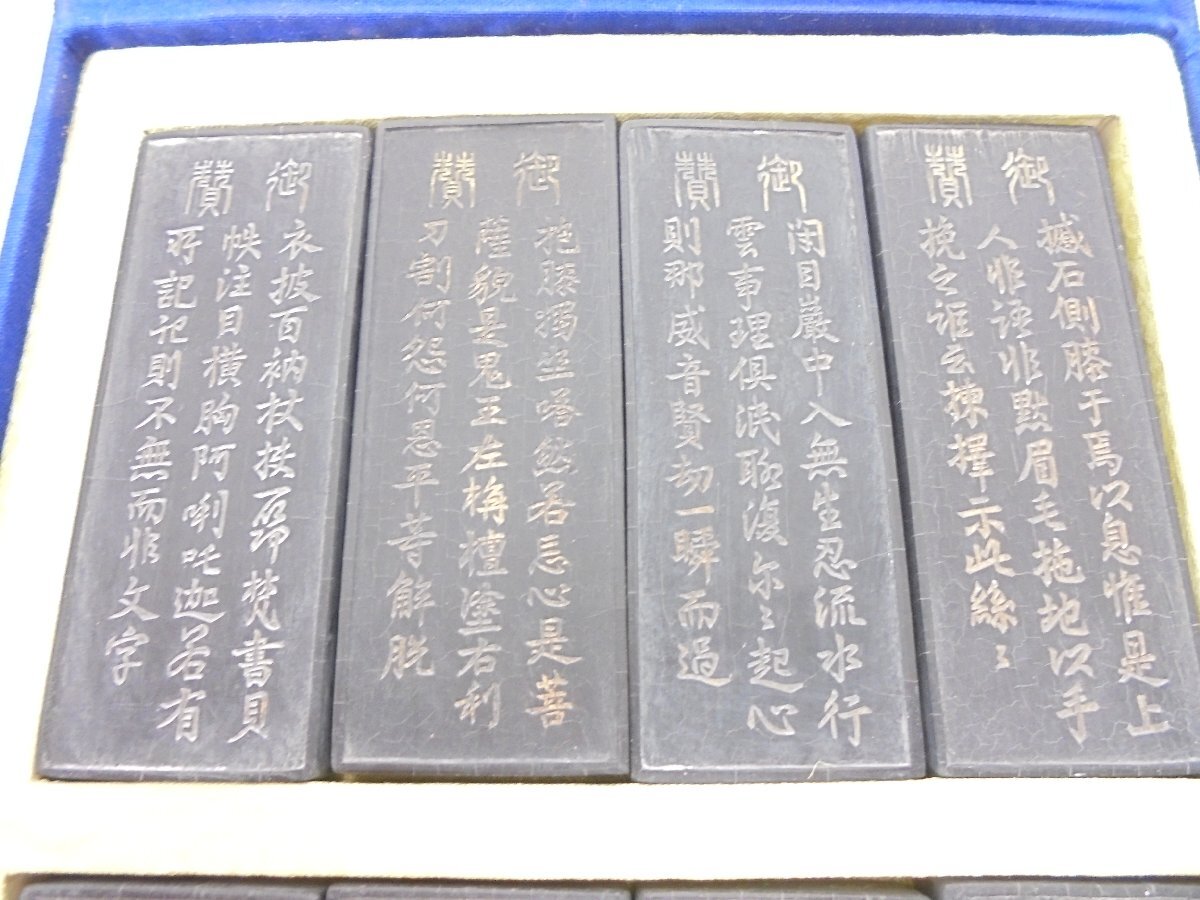 御贊
撼石側膝于焉以息惟是上
人非語非默眉毛拖地以手
挽之誰云揀擇示此絲〻
御贊
閉目巖中入無生忍流水行
雲事理俱泯聊復尔〻起心
則那威音賢劫一瞬而過
御贊
抱膝獨坐嗒然若忘心是菩
薩貌是鬼王左栴檀塗右利
刀割何怨何恩平等解脱
御贊
衣披百衲杖扶梵書貝
帙注目橫胸阿喇吒迦若有
所記記則不無而非文字